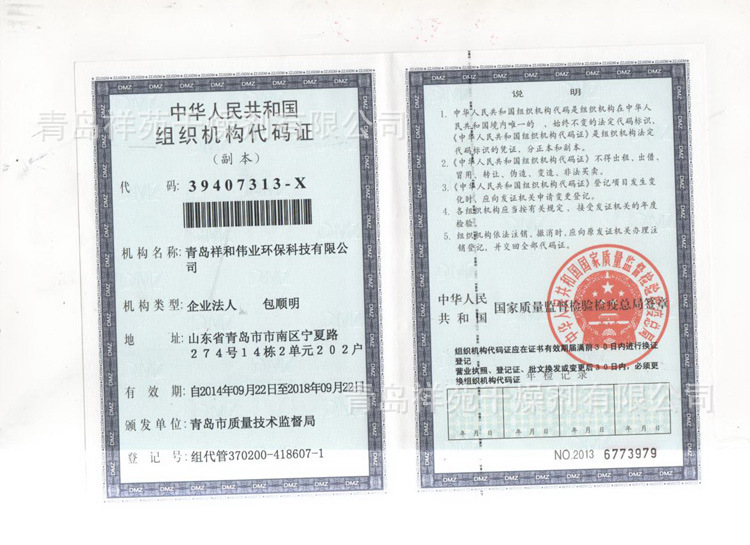 中华人民共和国
组织机构代码证
(副本)
代 码:39407313-X
机构名称:青岛祥和伟业环保科技有限公
司
机构类型:企业法人 包顺明
地 址:山东省青岛市市南区宁夏路
274号14栋2单元202户
有 效 期:自2014年09月22日至2018年09月22日
颁发单位:青岛市质量技术监督局
登 记 号:组代管370200-418607-1
说 明
1. 中华人民共和国组织机构代码是组织机构在中华人
民共和国境内唯一的、始终不变的法定代码标识,
《中华人民共和国组织机构代码证》是组织机构法定
代码标识的凭证,分正本和副本。
2.《中华人民共和国组织机构代码证》不得出租、出借、
冒用、转让、伪造、变造、非法买卖。
3.《中华人民共和国组织机构代码证》登记项目发生变
化时,应向发证机关申请变更登记。
4. 各组织机构应当按有关规定,接受发证机关的年度
检验。
5. 组织机构依法注销、撤消时,应向原发证机关办理注
销登记,并交回全部代码证。
中华人民
共和国 国家质量监督检验检疫总局签章
中华人民共和国国家质量监督检验检疫总局
组织机构代码证应在证书有效期届满前30日内进行换证
登记
营业执照、登记证、批文换发或变更后30日内,必须更
换组织机构代码证
年检记录
年 月 日 年 月 日 年 月 日 年 月 日
NO.2013 6773979
青岛祥苑干燥剂有限公司
青岛祥苑干燥剂有限公司